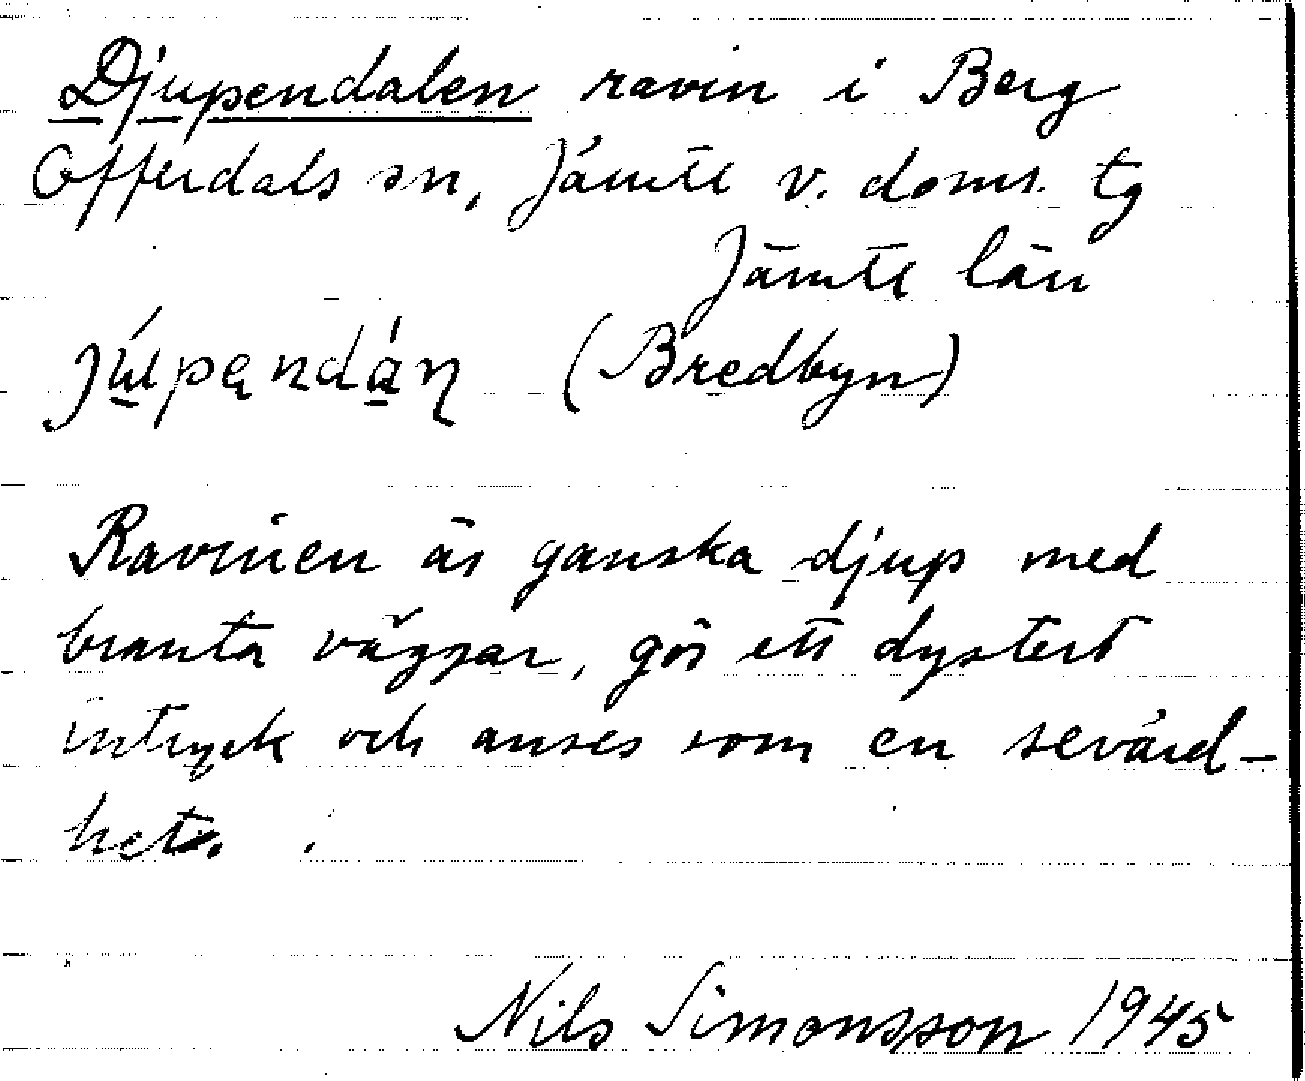 Djupendalen ravin i Berg
Offerdals sn, Jämtl v. doms. tg
Jämtl län
júpendán (Bredbyn)
Ravinen är ganska djup med
branta väggar, gör ett dystert
intryck och anses som en sevärd-
het.
Nils Simonsson 1945